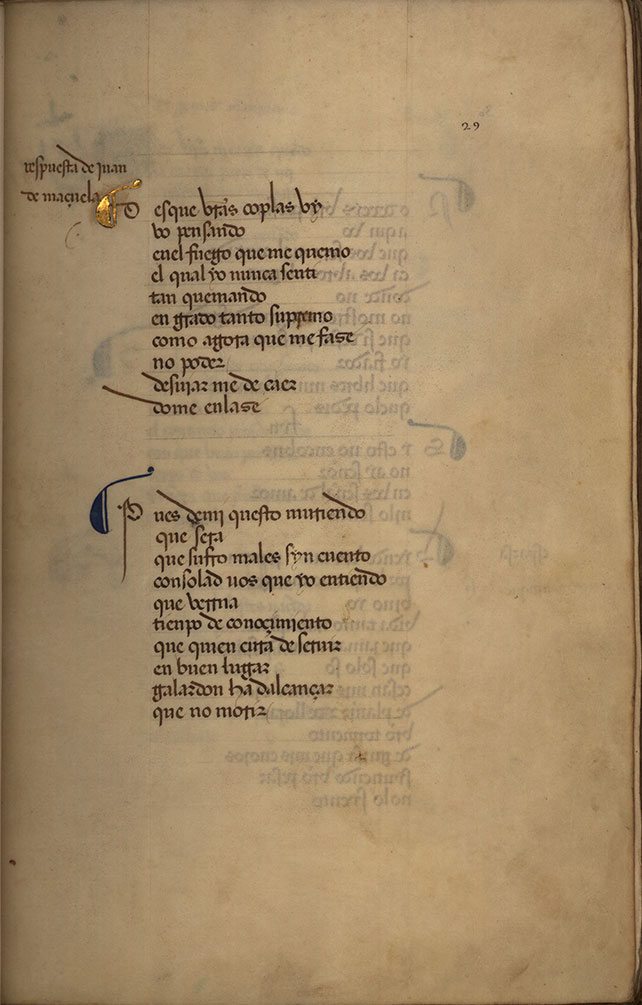 29
respuesta de juan
de maçuela
Desque vras coplas vy
vo pensando
enel fuego que me quemo
el qual yo nunca senti
tan quemando
en grado tanto supremo
como agora que me fase
no poder
desuiar me de caer
dome enlase
Pues demj questo muriendo
que sera
que sufro males syn cuento
consolad uos que yo entiendo
que verrna
tienpo de conoçimiento
que quien cura de seruir
en buen lugar
galardon ha dalcançar
que no morir